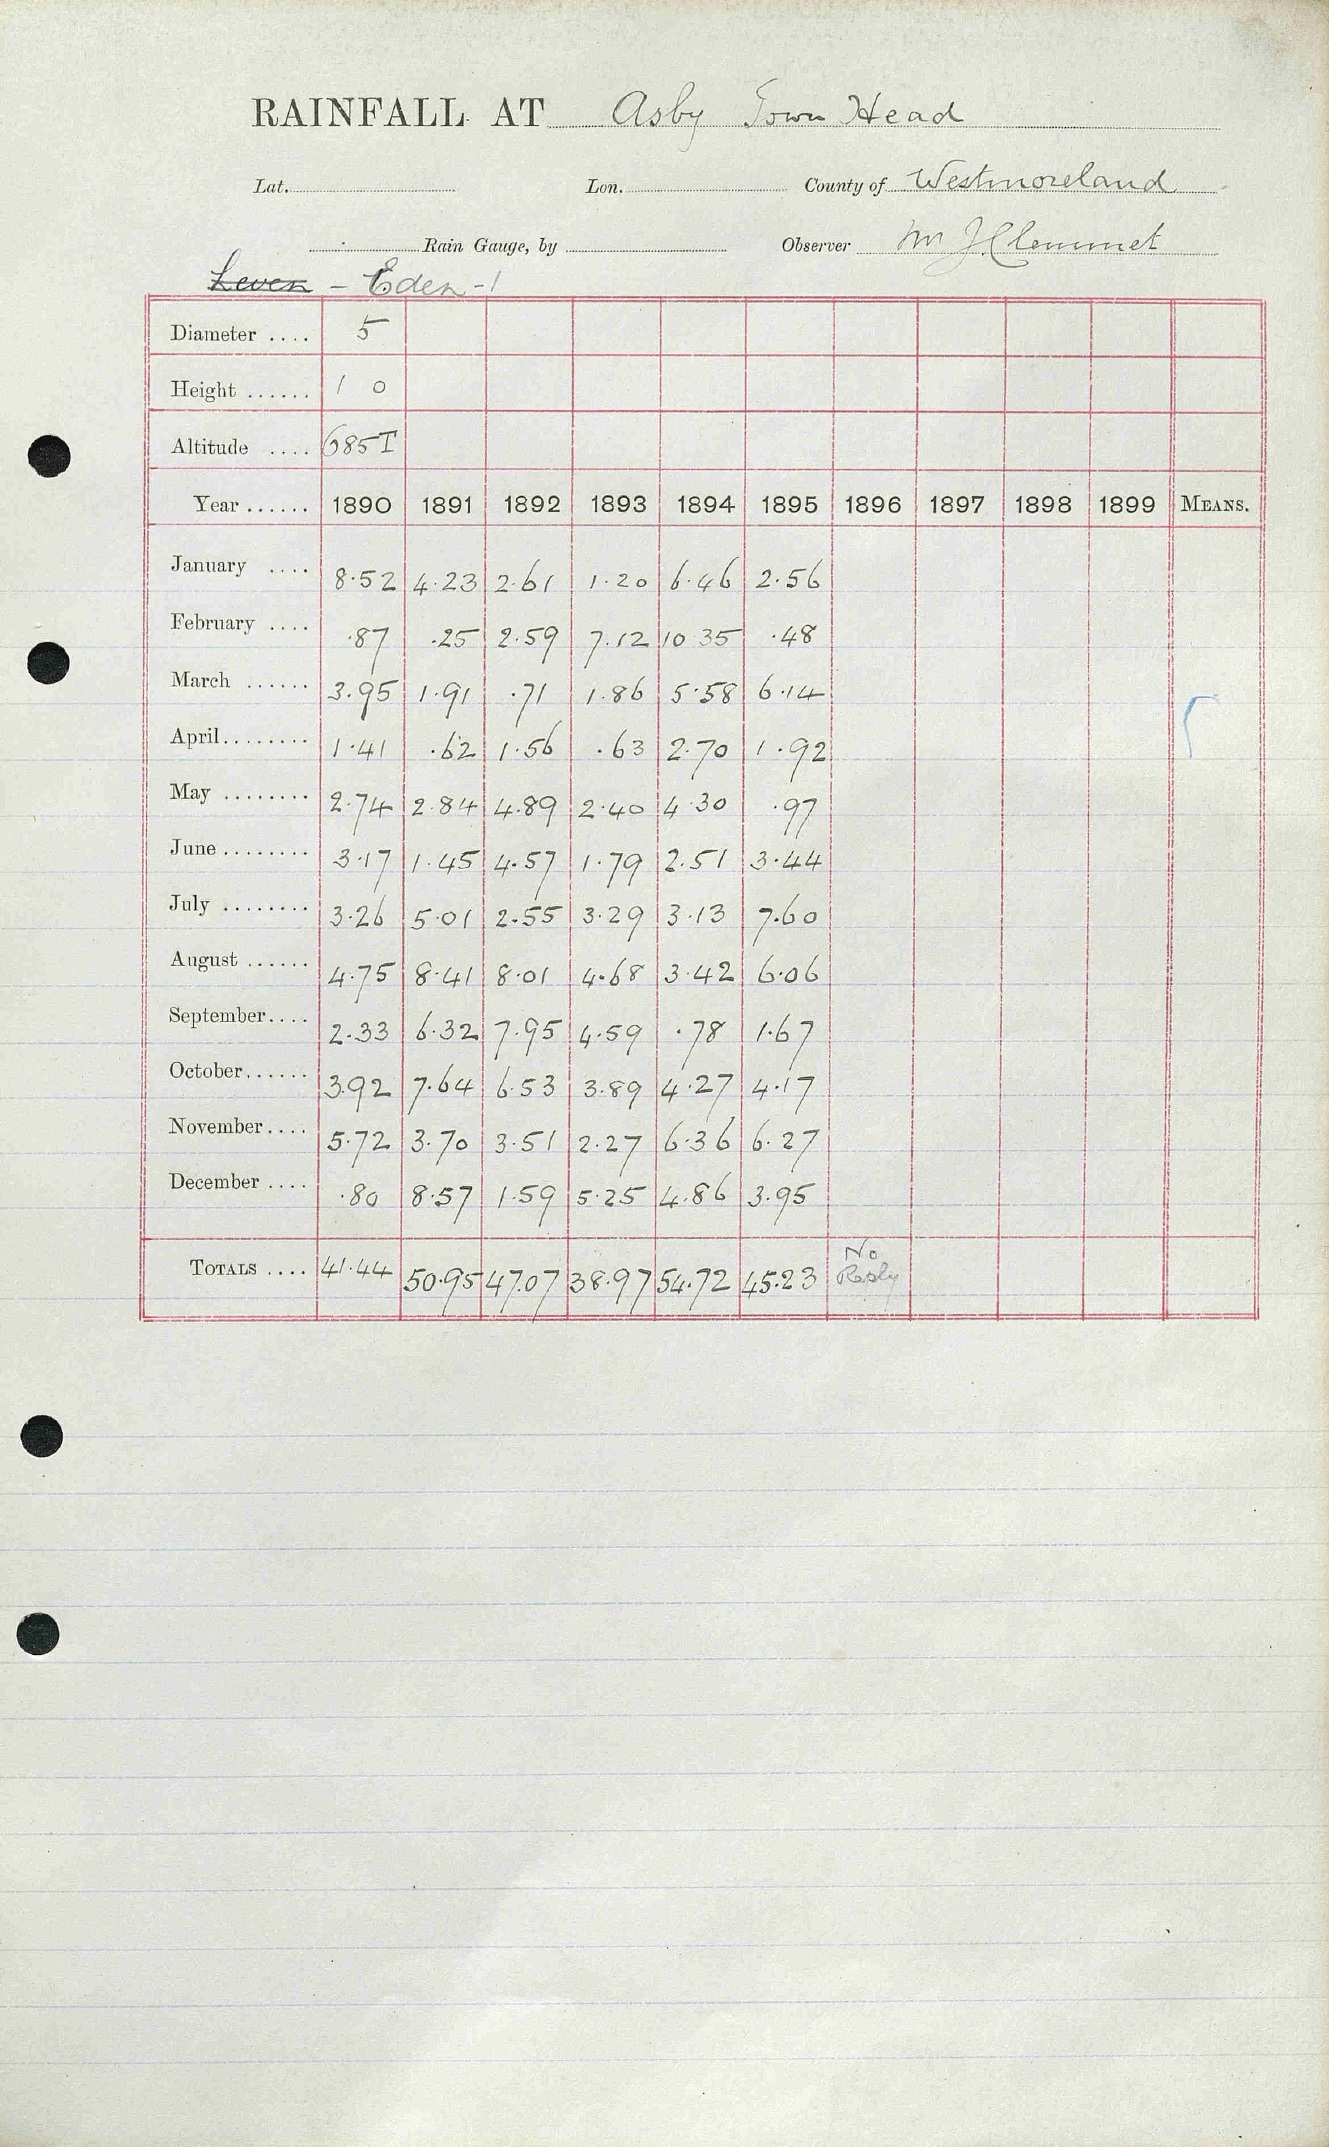 RAINFALL AT Asby Town Head
Lat. Lon. County of Westmoreland
Rain Gauge, by Observer Mr J Clemmet
Leven - Eden - 1
Diameter .... 5
Height ...... 1 0
Altitude .... 685T
Year ...... 1890 1891 1892 1893 1894 1895 1896 1897 1898 1899 MEANS.
January .... 8.52 4.23 2.61 1.20 6.46 2.56
February .... .87 .25 2.59 7.12 10 35 .48
March ...... 3.95 1.91 .71 1.86 5.58 6.14
April........ 1.41 .62 1.56 .63 2.70 1.92
May ........ 2.74 2.84 4.89 2.40 4 30 .97
June ........ 3.17 1.45 4.57 1.79 2.51 3.44
July ........ 3.26 5.01 2.55 3.29 3.13 7.60
August ...... 4.75 8.41 8.01 4.68 3.42 6.06
September.... 2.33 6.32 7.95 4.59 .78 1.67
October...... 3.92 7.64 6.53 3.89 4.27 4.17
November.... 5.72 3.70 3.51 2.27 6.36 6.27
December .... .80 8.57 1.59 5.25 4.86 3.95
TOTALS .... 41.44 50.95 47.07 38.97 54.72 45.23 No Reply